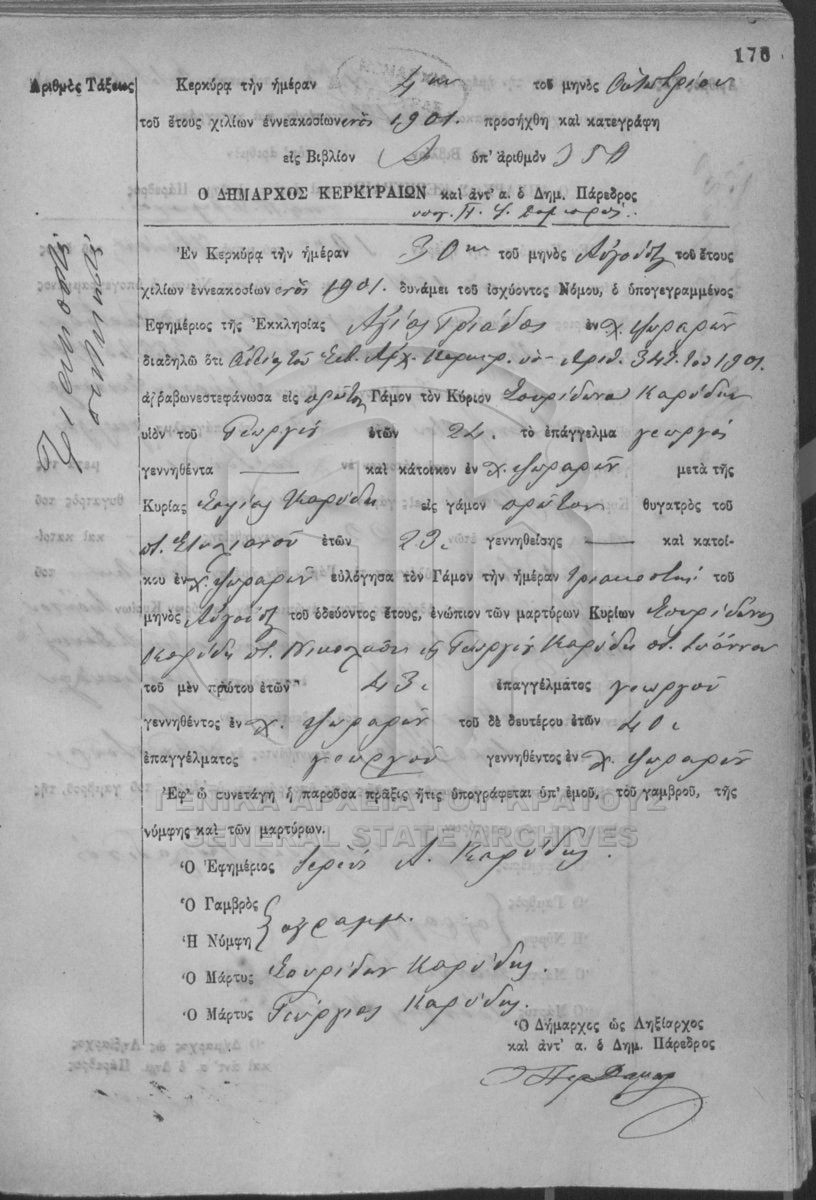 176
Ἀριθμὸς Τάξεως
Κερκύρᾳ τὴν ἡμέραν 4ην τοῦ μηνὸς Ὀκτωβρίου
τοῦ ἔτους χιλίων ἐννεακοσίων ἑνὸς 1901. προσήχθη καὶ κατεγράφη
εἰς Βιβλίον ὑπ' ἀριθμὸν 350
Ο ΔΗΜΑΡΧΟΣ ΚΕΡΚΥΡΑΙΩΝ καὶ ἀντ' α. ὁ Δημ. Πάρεδρος
Τριακοστὸς
Ἐν Κερκύρᾳ τὴν ἡμέραν 30ην τοῦ μηνὸς Αὐγούστ τοῦ ἔτους
χιλίων ἐννεακοσίων ἑνὸς 1901. δυνάμει τοῦ ἰσχύοντος Νόμου, ὁ ὑπογεγραμμένος
Ἐφημέριος τῆς Ἐκκλησίας Ἁγίας Τριάδος ἐν χ. Ψωραρῶν
διαδηλῶ ὅτι Ἀδείᾳ τοῦ Σεβ. Ἀρχ. Κερκύρ. ὑπ' Ἀριθ. 342 του 1901
ἀρραβωνεστεφάνωσα εἰς πρῶτον Γάμον τὸν Κύριον Σπυρίδωνα Καρύδην
υἱὸν τοῦ Γεωργίου ἐτῶν 24. τὸ ἐπάγγελμα γεωργός
γεννηθέντα — καὶ κάτοικον ἐν χ. Ψωραρῶν μετὰ τῆς
Κυρίας Καρύδη εἰς γάμον πρῶτον θυγατρὸς τοῦ
π. Στυλιανοῦ ἐτῶν 23. γεννηθείσης — καὶ κατοί-
κου ἐν χ. Ψωραρῶν εὐλόγησα τὸν Γάμον τὴν ἡμέραν τριακοστήν τοῦ
μηνὸς Αὐγούστ τοῦ ὁδεύοντος ἔτους, ἐνώπιον τῶν μαρτύρων Κυρίων Σπυρίδωνος
Καρύδη π. Νικολάου κ Γεωργίου Καρύδη π. Ἰωάννου
τοῦ μὲν πρώτου ἐτῶν 43. ἐπαγγέλματος γεωργοῦ
γεννηθέντος ἐν χ. Ψωραρῶν τοῦ δὲ δευτέρου ἐτῶν 40.
ἐπαγγέλματος γεωργοῦ γεννηθέντος ἐν χ. Ψωραρῶν
Ἐφ' ᾧ συνετάγη ἡ παροῦσα πρᾶξις ἥτις ὑπογράφεται ὑπ' ἐμοῦ, τοῦ γαμβροῦ, τῆς
νύμφης καὶ τῶν μαρτύρων.
ΓΕΝΙΚΑ ΑΡΧΕΙΑ ΤΟΥ ΚΡΑΤΟΥΣ
GENERAL STATE ARCHIVES
Ὁ Ἐφημέριος Ἱερεὺς Α. Καρύδης.
Ὁ Γαμβρὸς
Ἡ Νύμφη ἀγράμμ.
Ὁ Μάρτυς Σπυρίδων Καρύδης.
Ὁ Μάρτυς Γεώργιος Καρύδης.
Ὁ Δήμαρχος ὡς Ληξίαρχος
καὶ ἀντ' α. ὁ Δημ. Πάρεδρος